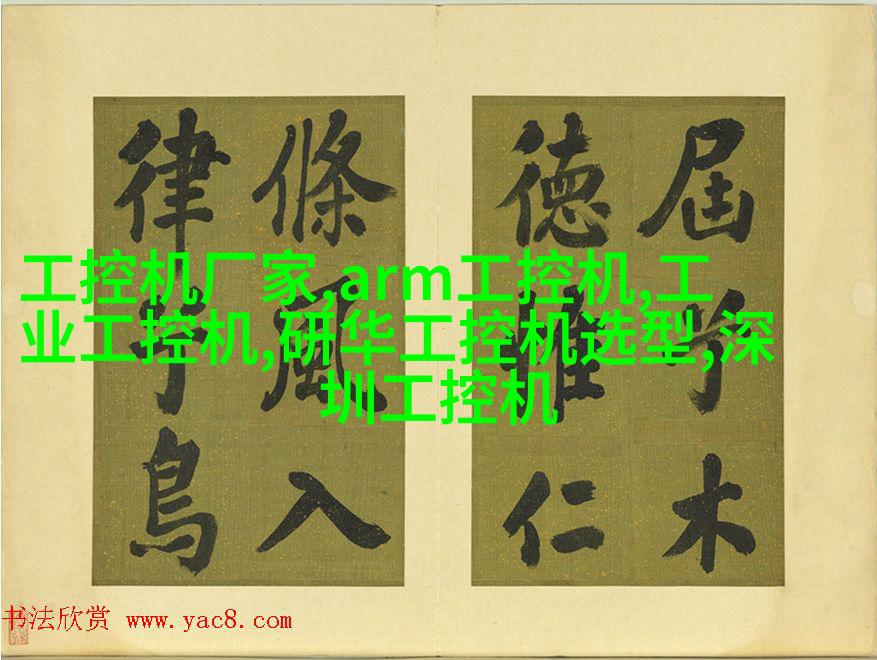 屆
木
德惟仁
條風入
律
鳥
工控机厂家,arm工控机,工
业工控机,研华工控机选型,深
圳工控机
书法欣赏 www.yac8.com